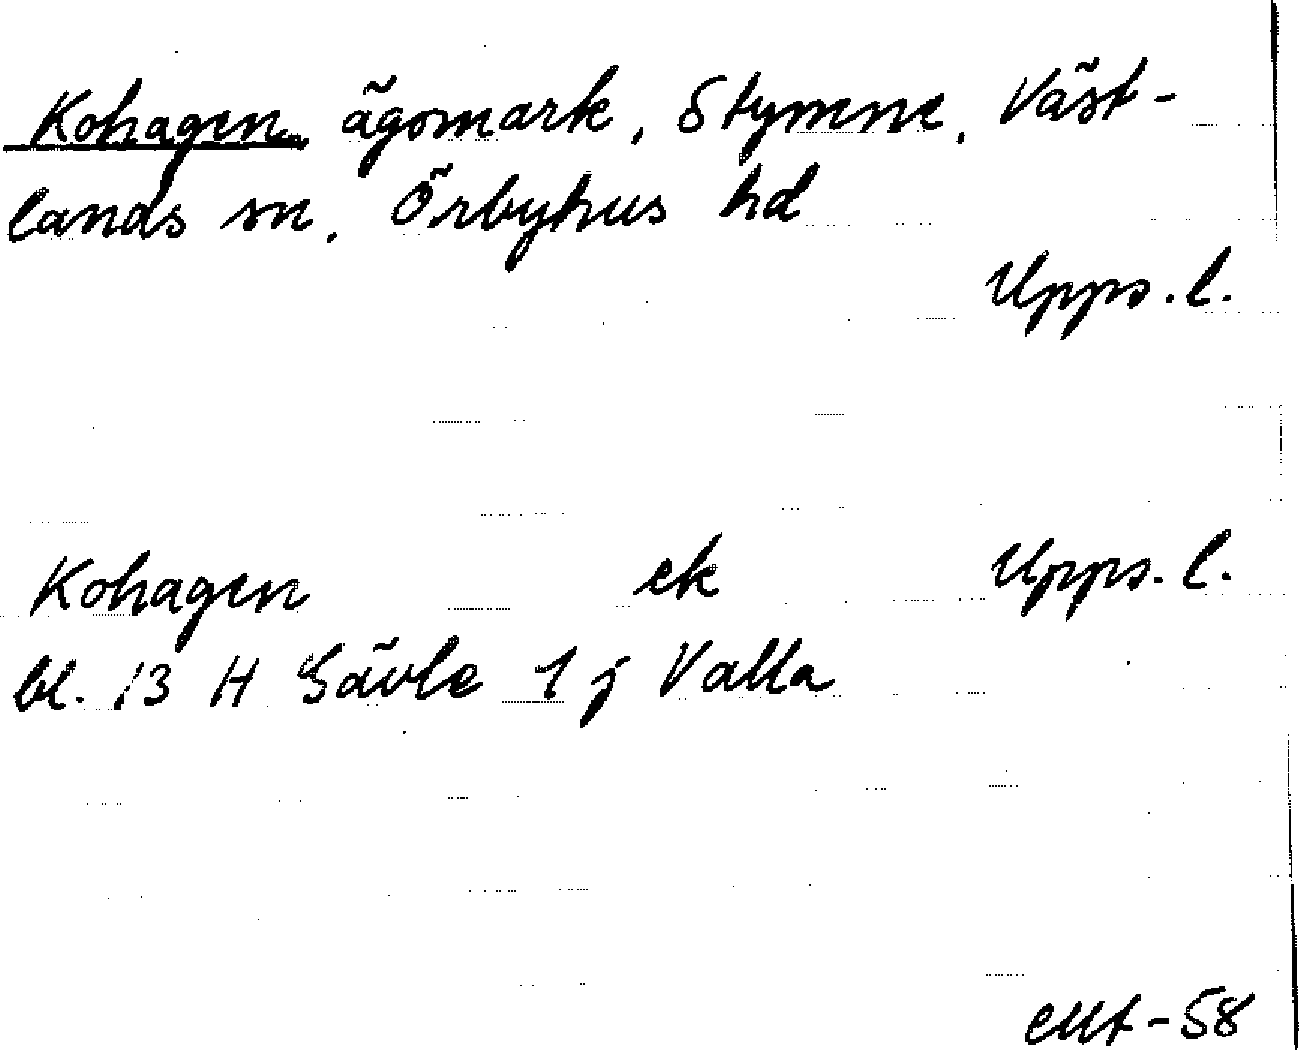 Kohagen, ägomark, Stymne, Väst-
lands sn, Örbyhus hd
Upps. l.
Kohagen ek Upps. l.
bl. 13 H Gävle 1 j Valla